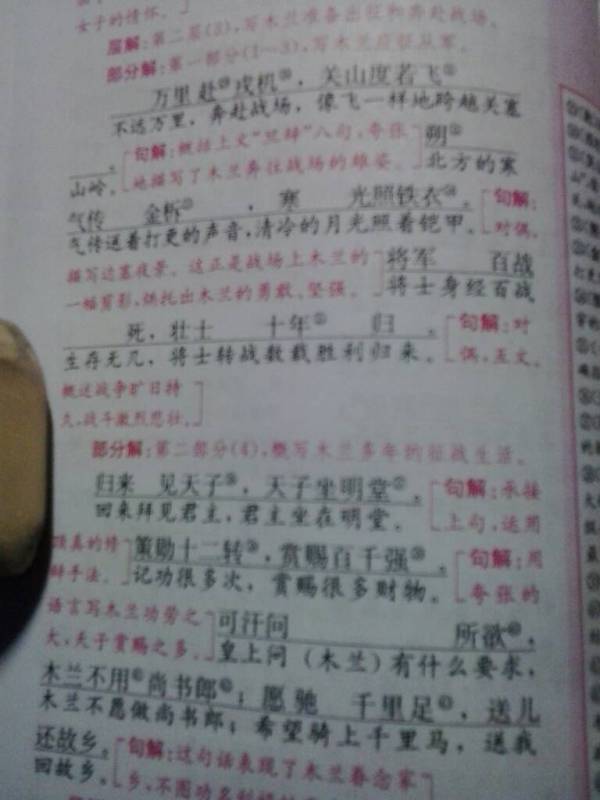 女子的情怀。
层解:第二层(3),写木兰准备出征和奔赴战场。
部分解:第一部分(1~3),写木兰应征从军。
万里赴⑳戎机,关山度若飞
不远万里,奔赴战场,像飞一样地跨越关塞
。 句解:概括上文“旦辞”八句,夸张 朔
山岭。 地描写了木兰奔往战场的雄姿。 北方的寒
气传 金柝 , 寒 光照铁衣 。 句解:
气传送着打更的声音,清冷的月光照着铠甲。 对偶。
描写边塞夜景。这正是战场上木兰的 将军 百战
一幅剪影,烘托出木兰的勇敢、坚强。 将士身经百战
死,壮士 十年 归 。 句解:对
生存无几,将士转战数载胜利归来。 偶,互文。
概述战争旷日持
久,战斗激烈悲壮。
部分解:第二部分(4),概写木兰多年的征战生活。
归来 见天子,天子坐明堂。 句解:承接
回来拜见君主,君主坐在明堂。 上句,运用
顶真的修 策勋十二转,赏赐百千强。 句解:用
辞手法。 记功很多次,赏赐很多财物。 夸张的
语言写木兰功劳之 可汗问 所欲,
大,天子赏赐之多。 皇上问(木兰)有什么要求,
木兰不用尚书郎;愿驰 千里足,送儿
木兰不愿做尚书郎;希望骑上千里马,送我
还故乡。 句解:这句话表现了木兰眷念家
回故乡。 乡,不图功名利禄的